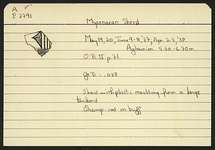 A
P 2791
Mycenaean Sherd
May 19, 20, June 9-11, '37, Apr. 2-5, '38
Aglaurion 5.50-6.70 m.
O.B. II p. 71
D. - .028
Sherd with plastic moulding from a large
Orange-red on buff